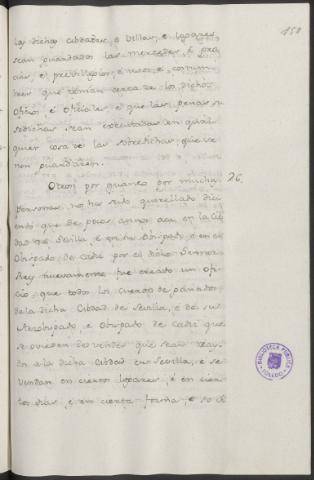 158
las dichas Cibdades, e Villas, e Logares,
sean guardadas las mercedes, e gra
cias, e previllejios, e usos, e costum
bres que tenian cerca de los dichos
Oficios, e Oficiales, e que las penas su
sodichas sean executadas en quales
quier cosa de las sobredichas, que se
non guardaren.
Otrosi por quanto por muchas 26.
personas nos ha sido querellado dici
endo que de pocos años acá en la Cib
dad de Sevilla, e en su Obispado, e en el
Obispado de Cadiz por el dicho Señor
Rey nuevamente fue criado un ofi
cio, que todos los Cueros de ganados
de la dicha Cibdad de Sevilla, e de su
Arzobispado, e Obispado de Cadiz que
se ovieren de vender que sean traí
dos a la dicha Cibdad de Sevilla, e se
vendan en ciertos logares, e en cier
tos dias, e en cierta forma, e so
BIBLIOTECA PÚBLICA
TOLEDO